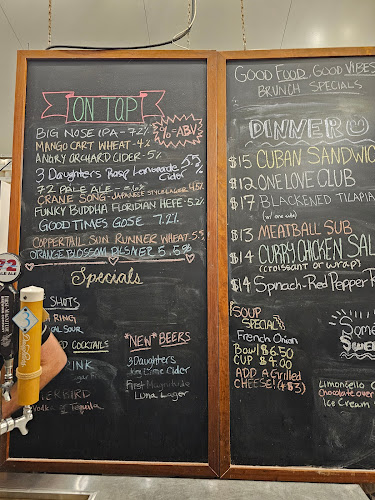 ON TAP
%-ABV
BIG NOSE IPA - 7.2%
MANGO CART WHEAT - 4%
ANGRY ORCHARD CIDER - 5%
3 Daughters Rosé Lemonade Cider 5.5%
72 PALE ALE -
CRANE SONG - JAPANESE STYLE LAGER 4.5%
FUNKY BUDDHA FLORIDIAN HEFE 5.2%
GOOD TIMES GOSE 7.2%
COPPERTAIL SUN RUNNER WHEAT 5.5%
ORANGE BLOSSOM PILSNER 5.5%
Specials
SHOTS
RING
AL SOUR
ED COCKTAILS
INK
ERBIRD
Vodka & Tequila
*NEW* BEERS
3 Daughters
Key Lime Cider
First Magnitude
Luna Lager
72
PALE ALE
FIRST MAGNITUDE
GOOD FOOD, GOOD VIBES
BRUNCH SPECIALS
DINNER
$15 CUBAN SANDWIC
$12 ONE LOVE CLUB
$17 BLACKENED TILAPIA
(w/ one side)
$13 MEATBALL SUB
$14 CURRY CHICKEN SAL
(croissant or wrap)
$14 SPINACH-RED PEPPER
SOUP
SPECIAL
French Onion
Bowl $6.50
CUP $4.00
ADD A Grilled
CHEESE! (+$3)
Some
Sweet
Limoncello
Chocolate over
Ice Cream